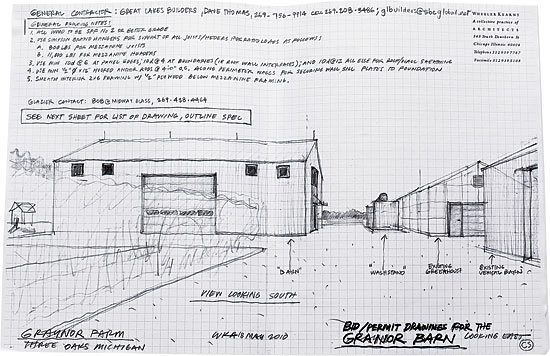 GENERAL CONTRACTOR: GREAT LAKES BUILDERS, DAVE THOMAS, 269-756-9914 CELL 269.208-3486; glbuilders@sbcglobal.net
GENERAL FRAMING NOTES:
1. ALL WOOD TO BE SPF NO 2 OR BETTER GRADE
2. USE SIMPSON BRAND HANGERS FOR SUPPORT OF ALL JOISTS/HEADERS FOR RATED LOADS AS FOLLOWS:
A. 800 LBS FOR MEZZANINE JOISTS
B. 11,000 LBS FOR MEZZANINE HEADERS
3. USE MIN 10d@6 AT PANEL EDGES, 10d@4 AT BOUNDARIES (IE ROOF WALL INTERFACES), AND 10d@12 ALL ELSE FOR ROOF/WALL SHEATHING
4. USE MIN ½"Ø x 12" HOOKED ANCHOR RODS @ 4'-0" O.C. ALONG PERIMETER WALLS FOR SECURING WALL SILL PLATES TO FOUNDATION
5. SHEATH INTERIOR 2x6 FRAMING W/ ½" PLYWOOD BELOW MEZZANINE FRAMING.
GLAZIER CONTACT: BOB@MIDWAY GLASS, 269-428-4464
SEE NEXT SHEET FOR LIST OF DRAWING, OUTLINE SPEC
WHEELER KEARNS
A collective practice of
ARCHITECTS
343 South Dearborn St
Chicago Illinois 60604
Telephone 312 939 7787
Facsimile 312 939 5108
"BARN"
"WASHSTAND"
EXISTING GREENHOUSE
EXISTING VEHICLE BARN
VIEW LOOKING SOUTH
GRAYNOR FARM
THREE OAKS MICHIGAN
18 MAY 2010
BID/PERMIT DRAWINGS FOR THE
GRAYNOR BARN LOOKING EAST
CS